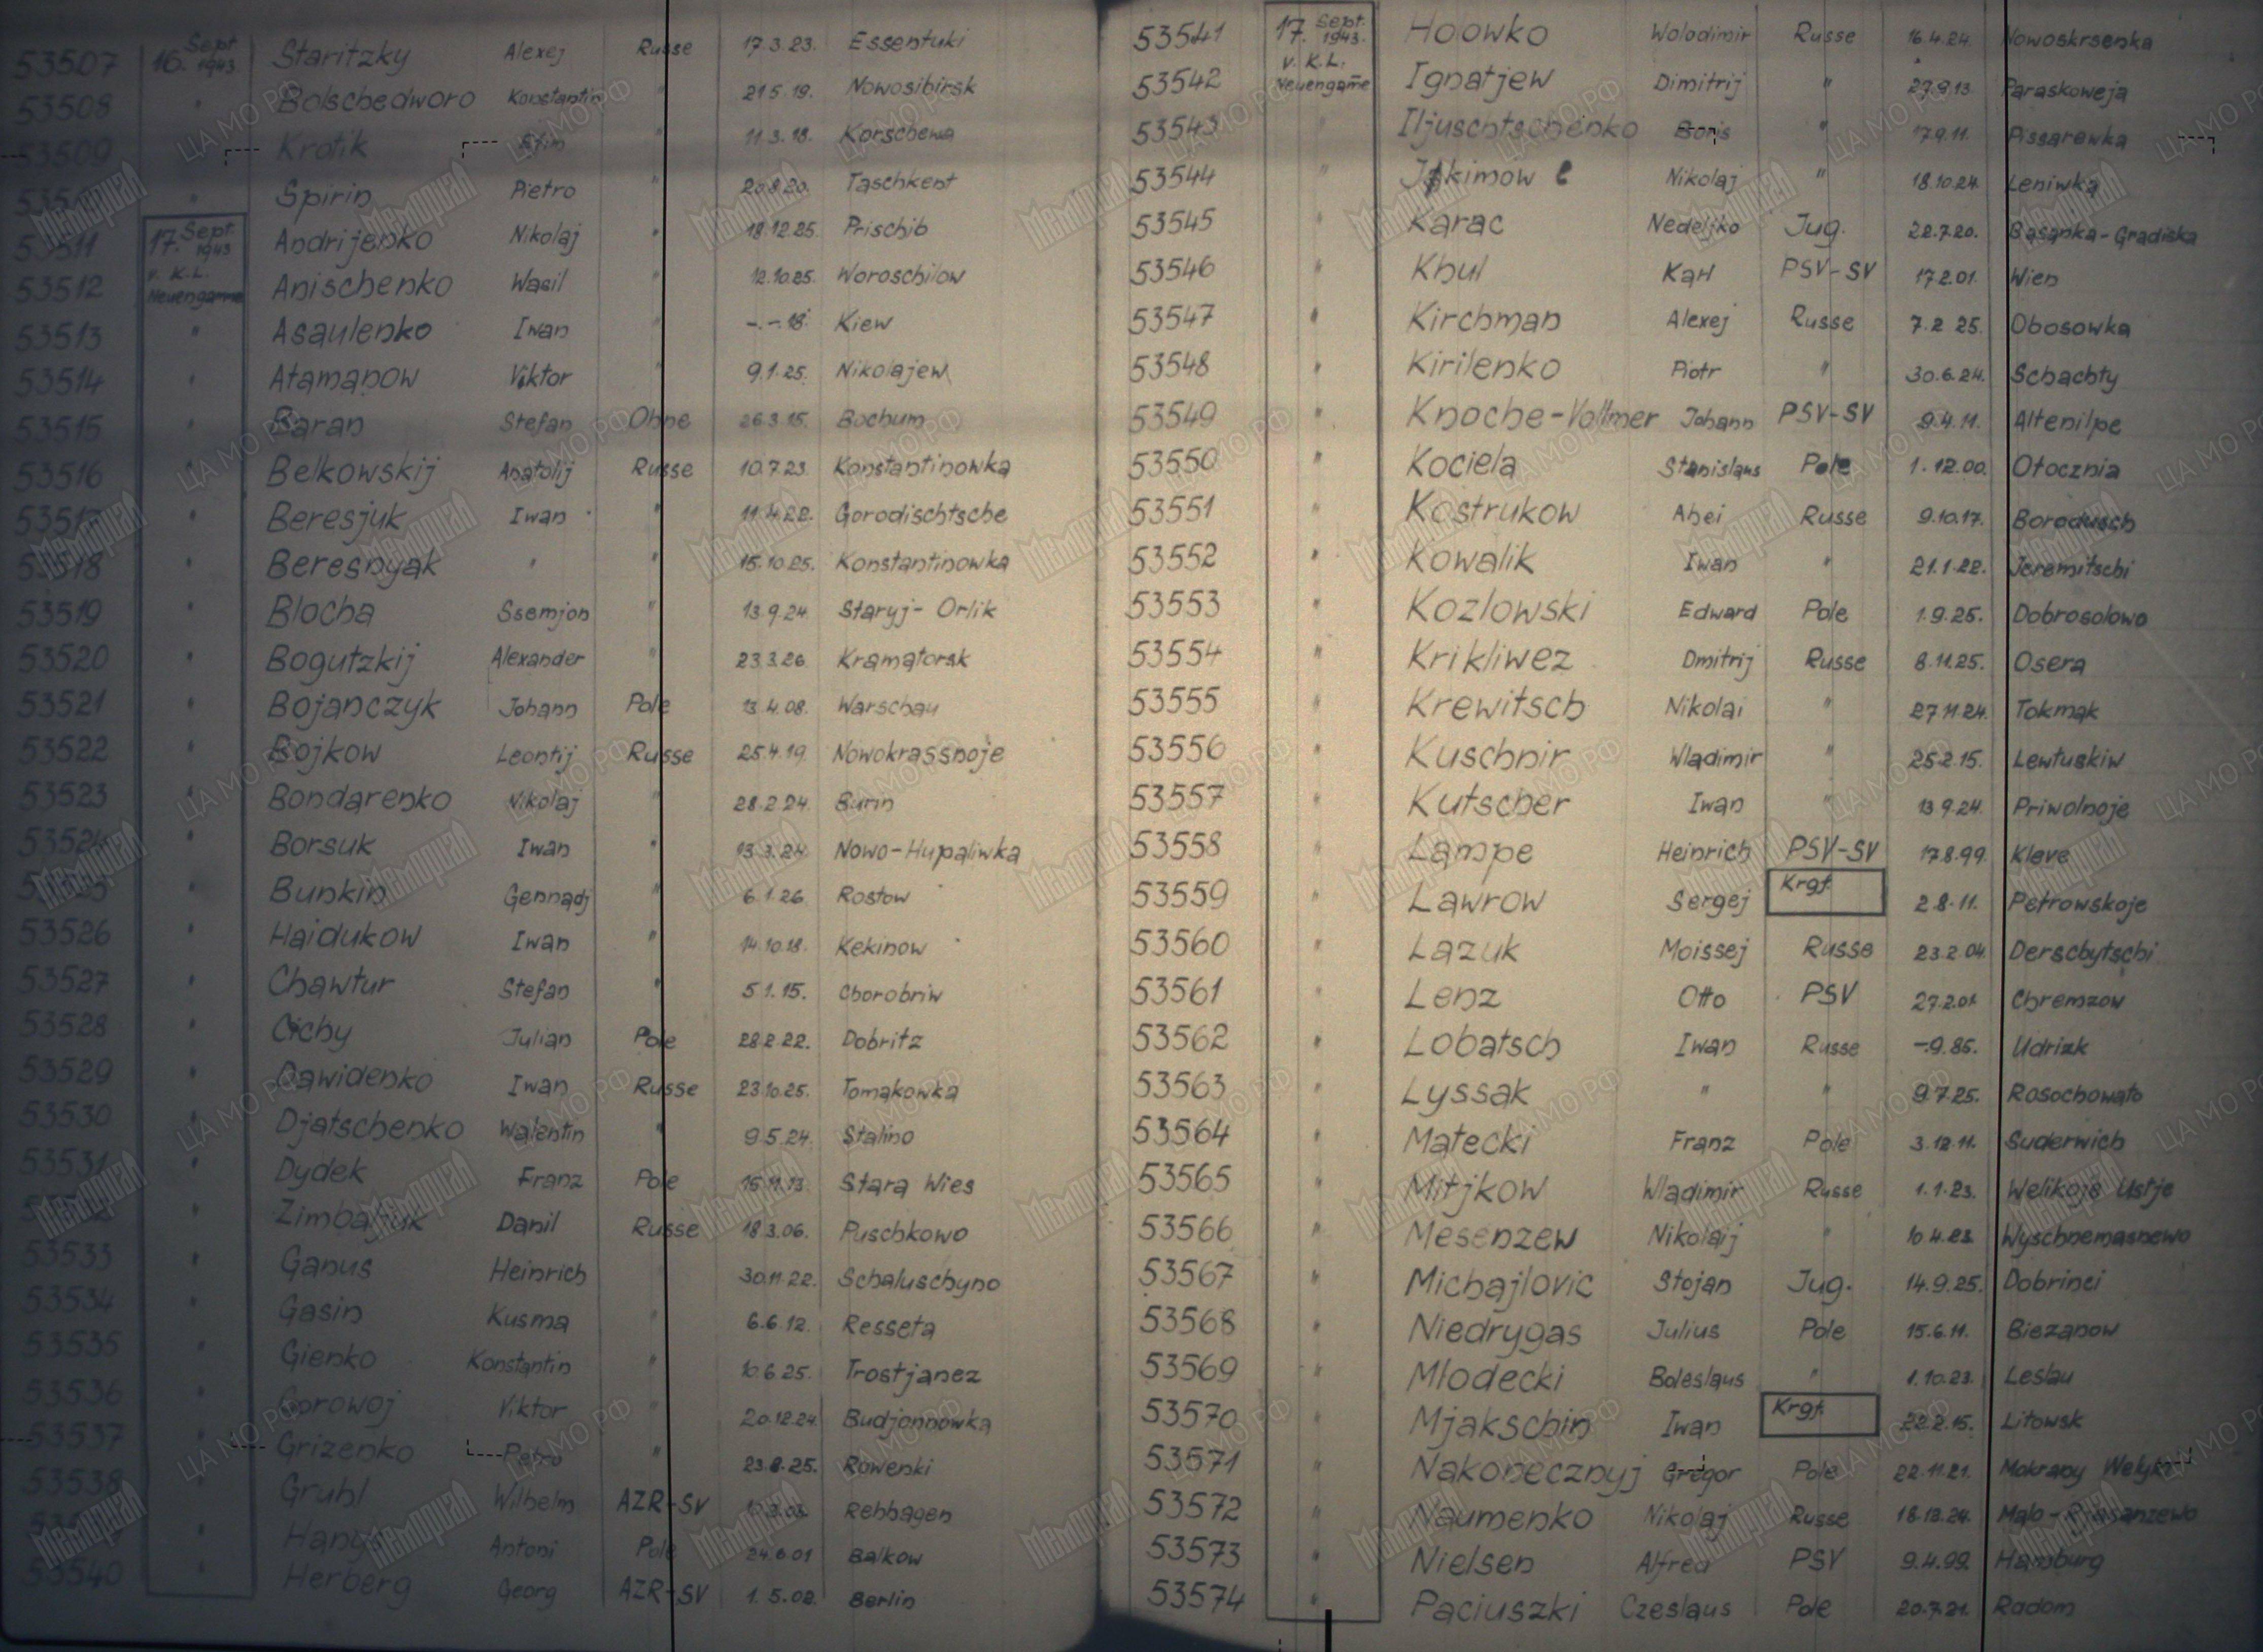 53507 16. Sept. 1943. Staritzky Alexej Russe 17.3.23. Essentuki
53508 " Bolschedworo Konstantin " 21.5.19. Nowosibirsk
53509 " Krotik " 11.3.18. Korschewa
" Spirin Pietro " 20.8.20. Taschkent
53511 17. Sept. 1943 Andrijenko Nikolaj " 18.12.25. Prischib
v. K.L.
53512 Neuengamme Anischenko Wasil " 12.10.25. Woroschilow
53513 " Asaulenko Iwan " -.-.18. Kiew
53514 " Atamanow Viktor " 9.1.25. Nikolajew
53515 " Baran Stefan Ohne 26.3.15. Bochum
53516 " Belkowskij Anatolij Russe 10.7.23. Konstantinowka
53517 " Beresjuk Iwan " 11.4.22. Gorodischtsche
53518 " Beresnyak " " 15.10.25. Konstantinowka
53519 " Blocha Ssemjon " 13.9.24. Staryj-Orlik
53520 " Bogutzkij Alexander " 23.3.26. Kramatorsk
53521 " Bojanczyk Johann Pole 13.4.08. Warschau
53522 " Bojkow Leontij Russe 25.4.19. Nowokrassnoje
53523 " Bondarenko Nikolaj " 28.2.24. Burin
53524 " Borsuk Iwan " 13.3.24. Nowo-Hupaliwka
" Bunkin Gennadj " 6.1.26. Rostow
53526 " Haidukow Iwan " 14.10.18. Kekinow
53527 " Chawtur Stefan " 5.1.15. Chorobriw
53528 " Cichy Julian Pole 28.2.22. Dobritz
53529 " Dawidenko Iwan Russe 23.10.25. Tomakowka
53530 " Djatschenko Walentin " 9.5.24. Stalino
53531 " Dydek Franz Pole 15.11.13. Stara Wies
" Zimbaljuk Danil Russe 18.3.06. Puschkowo
53533 " Ganus Heinrich " 30.11.22. Schaluschyno
53534 " Gasin Kusma " 6.6.12. Resseta
53535 " Gienko Konstantin " 10.6.25. Trostjanez
53536 " Gorowoj Viktor " 20.12.24. Budjonnowka
53537 " Grizenko Petro " 23.8.25. Rowenki
53538 " Gruhl Wilhelm AZR-SV Rehhagen
" Hanys Antoni Pole 24.6.01 Balkow
53540 " Herberg Georg AZR-SV 1.5.02. Berlin
53541 17. Sept. 1943. Hoowko Wolodimir Russe 16.4.24. Nowoskrsenka
v. K.L.
53542 Neuengame Ignatjew Dimitrij " 27.9.13. Paraskoweja
53543 " Iljuschtschenko Boris " 17.9.11. Pissarewka
53544 " Jakimow Nikolaj " 18.10.24. Leniwka
53545 " Karac Nedeljko Jug. 22.7.20. Basanka-Gradiska
53546 " Khul Karl PSV-SV 17.2.01. Wien
53547 " Kirchman Alexej Russe 7.2.25. Obosowka
53548 " Kirilenko Piotr " 30.6.24. Schachty
53549 " Knoche-Vollmer Johann PSV-SV 9.4.11. Altenilpe
53550 " Kociela Stanislaus Pole 1.12.00. Otocznia
53551 " Kostrukow Ahei Russe 9.10.17. Borodusch
53552 " Kowalik Iwan " 21.1.22. Jeremitschi
53553 " Kozlowski Edward Pole 1.9.25. Dobrosolowo
53554 " Krikliwez Dmitrij Russe 8.11.25. Osera
53555 " Krewitsch Nikolai " 27.11.24. Tokmak
53556 " Kuschnir Wladimir " 25.2.15. Lewtuskiw
53557 " Kutscher Iwan " 13.9.24. Priwolnoje
53558 " Lampe Heinrich PSV-SV 17.8.99. Kleve
53559 " Lawrow Sergej Krgf. 2.8.11. Petrowskoje
53560 " Lazuk Moissej Russe 23.2.04. Derschytschi
53561 " Lenz Otto PSV 27.2.01. Chremzow
53562 " Lobatsch Iwan Russe -.9.85. Udrizk
53563 " Lyssak " " 9.7.25. Rosochowato
53564 " Matecki Franz Pole 3.12.11. Suderwich
53565 " Mitjkow Wladimir Russe 1.1.23. Welikoje Ustje
53566 " Mesenzew Nikolaij " 10.4.23. Wyschnemasnewo
53567 " Michajlovic Stojan Jug. 14.9.25. Dobrinci
53568 " Niedrygas Julius Pole 15.6.11. Biezanow
53569 " Mlodecki Boleslaus " 1.10.23. Leslau
53570 " Mjakschin Iwan Krgf. 22.2.15. Litowsk
53571 " Nakonecznyj Gregor Pole 22.11.21. Mokrany
53572 " Naumenko Nikolaj Russe 18.12.24. Malo-Rjasanzewo
53573 " Nielsen Alfred PSV 9.4.99. Hamburg
53574 " Paciuszki Czeslaus Pole 20.7.21. Radom